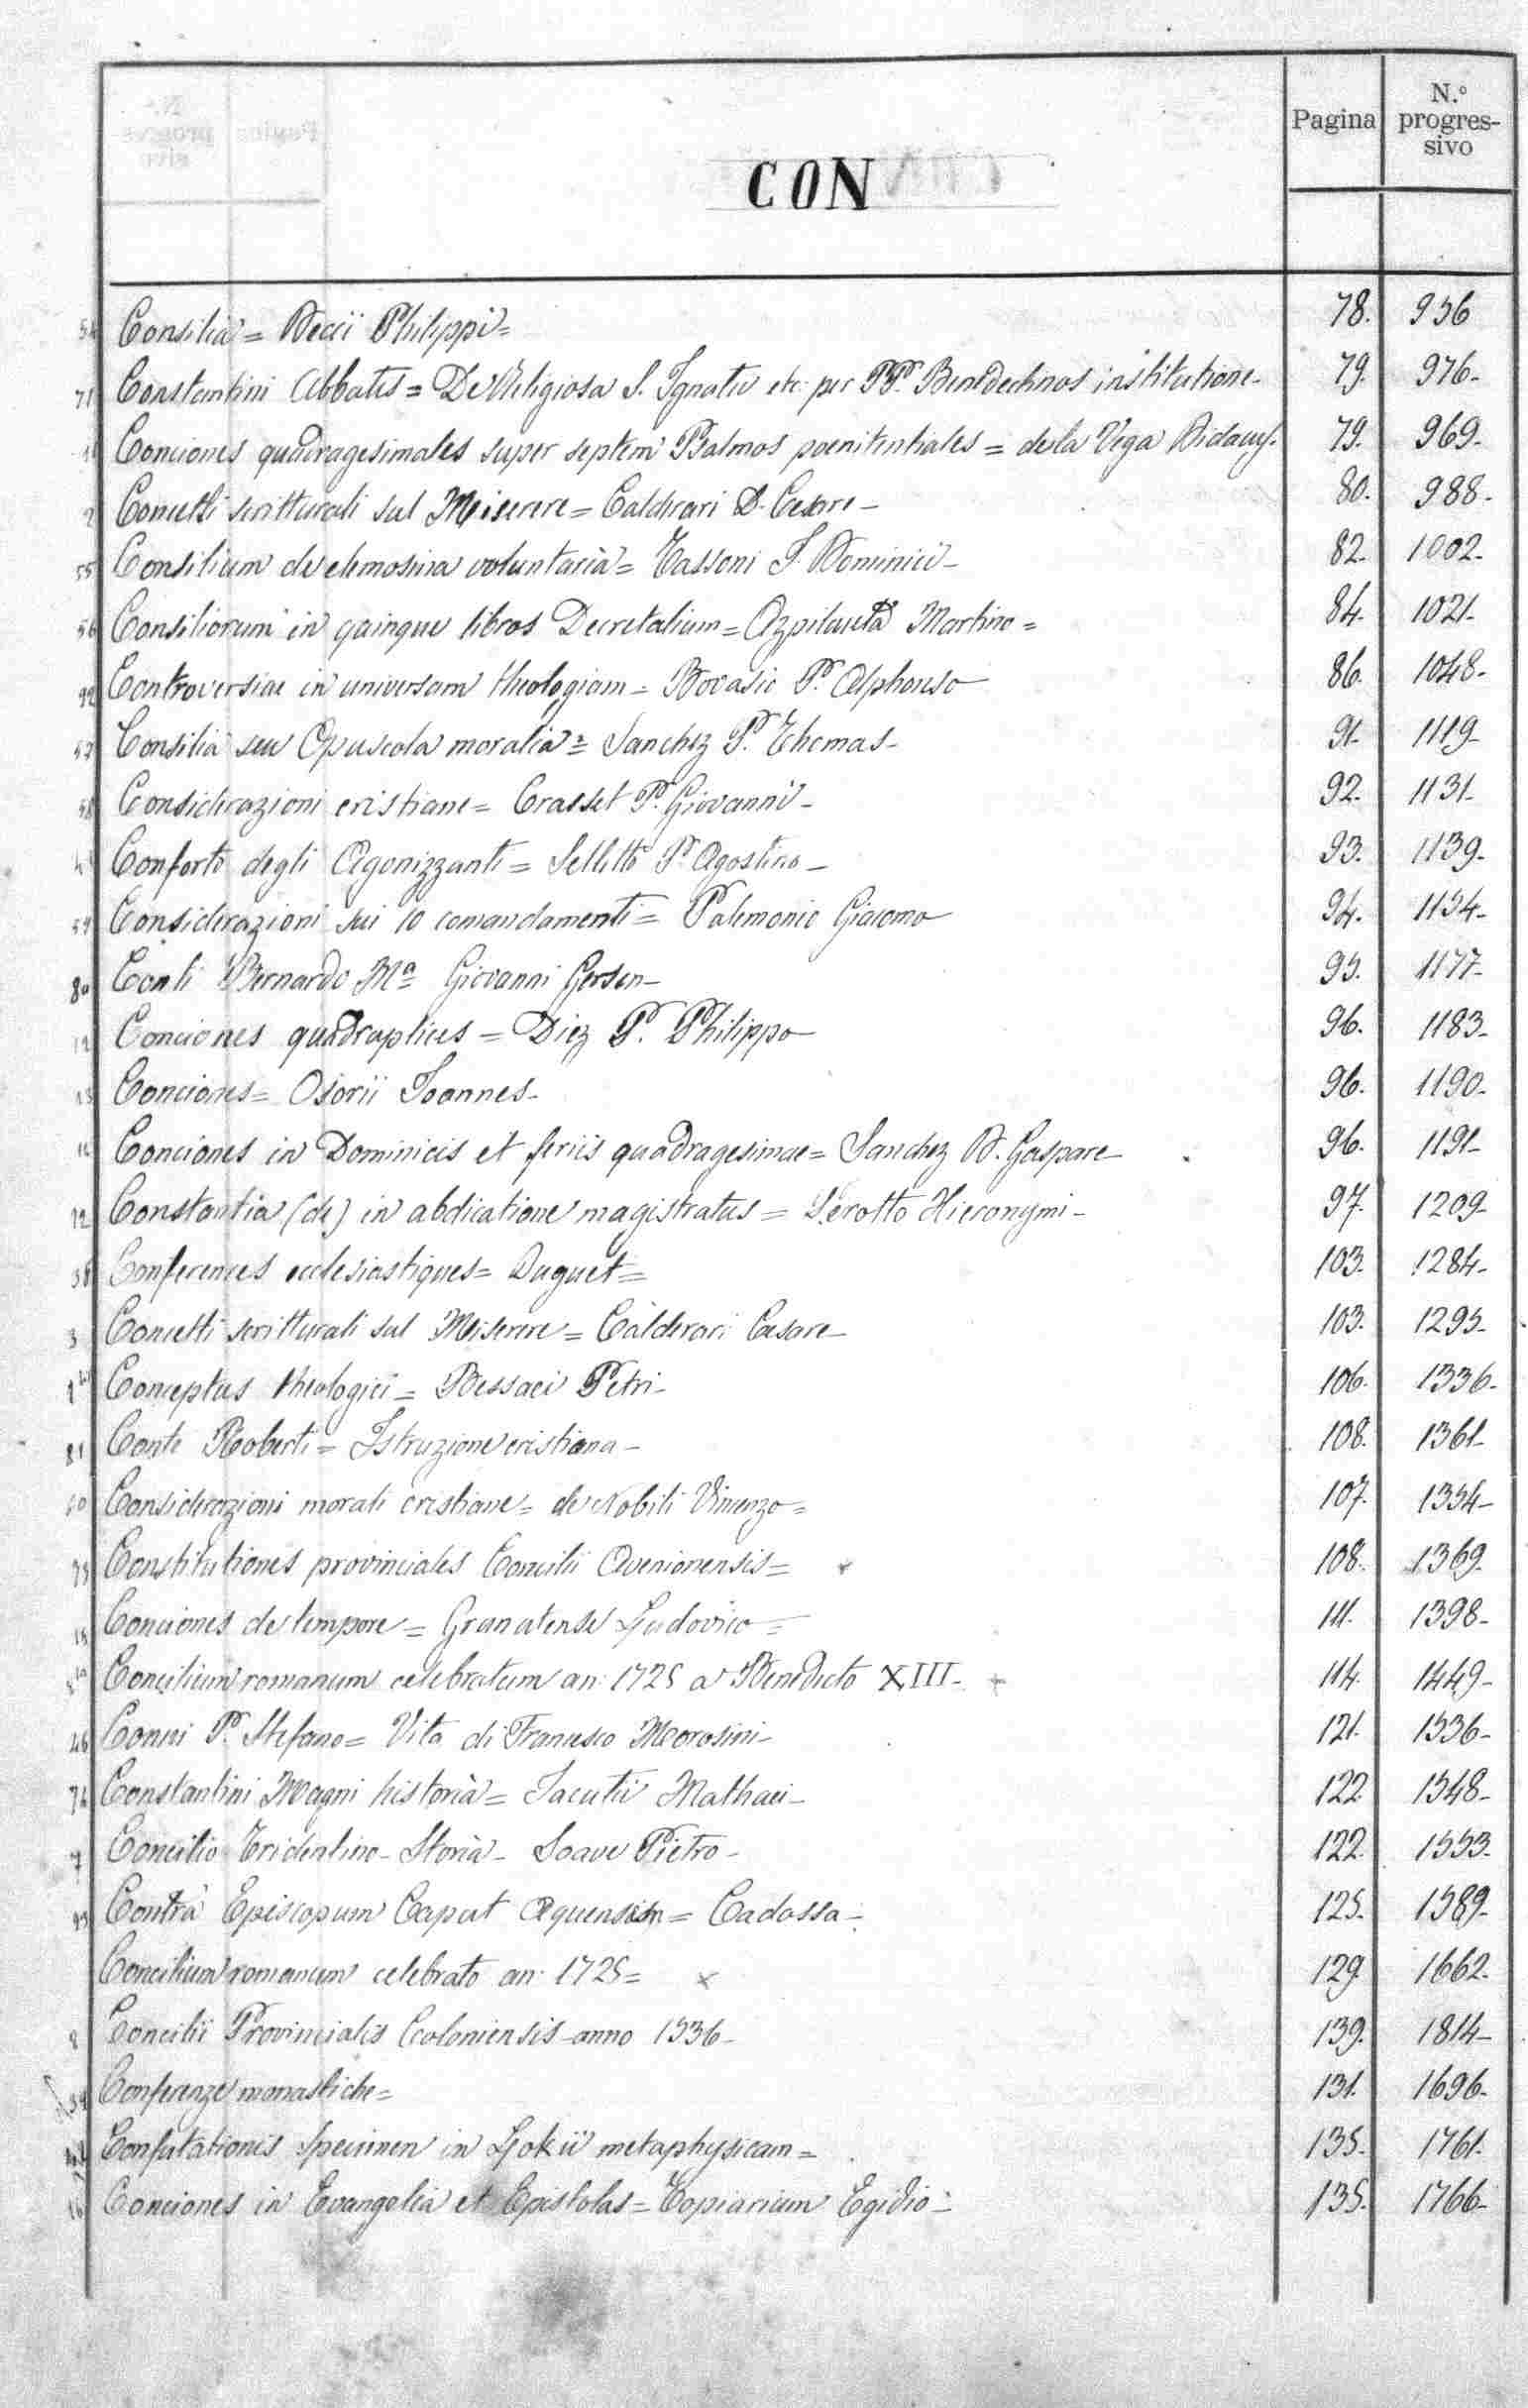 Pagina N.° progres-
sivo
CON
54 Consilia = Decii Philippi = 78. 956
71 Constantini Abbatis = De Religiosa S. Ignatii etc. per PP. Benedectinos institutione - 79. 976-
Conciones quadragesimales super septem Psalmos poenitentiales = de la Vega Didacus. 79. 969-
2 Concetti scritturali sul Miserere = Calderari D. Cesare - 80. 988-
55 Consilium de elemosina voluntaria = Tassoni J. Dominici - 82. 1002-
56 Consiliorum in quinque libros Decretalium = Azpilcueta Martino = 84. 1021-
92 Controversiae in universam theologiam = Bovasio P. Alphonso 86. 1048-
57 Consilia seu Opuscola moralia = Sanchez P. Thomas - 91. 1119-
58 Considerazioni cristiane = Crasset P. Giovanni - 92. 1131-
Conforto degli Agonizzanti = Sellitto P. Agostino - 93. 1139-
59 Considerazioni sui 10 comandamenti = Palemonio Giacomo 94. 1154-
80 Conti Bernardo Ma Giovanni Gersen - 95. 1177-
12 Conciones quadruplices = Diez P. Philippo 96. 1183-
13 Conciones = Osorii Joannes - 96. 1190-
Conciones in Dominicis et feriis quadragesimae = Sanchez D. Gaspare 96. 1191-
72 Constantia (de) in abdicatione magistratus = Serotto Hieronymi - 97. 1209-
38 Conferences ecclesiastiques = Duguet = 103. 1284-
3 Concetti scritturali sul Miserere = Calderari Cesare - 103. 1295-
Conceptus theologici = Bessaei Petri - 106. 1336-
81 Conte Roberti = Istruzione cristiana - 108. 1361-
60 Considerazioni morali cristiane = de Nobili Vincenzo = 107. 1354-
73 Constitutiones provinciales Concilii Avenionensis = 108. 1369-
15 Conciones de tempore = Granatense Ludovico = 111. 1398-
Concilium romanum celebratum an: 1725 a Benedicto XIII - + 114. 1449-
46 Connii P. Stefano = Vita di Francesco Morosini - 121. 1536-
74 Constantini Magni historia = Jacutii Mathaei - 122. 1548-
7 Concilio Tridentino - Storia - Soave Pietro - 122. 1553-
93 Contra Episcopum Caput Aquensem = Cadossa - 125. 1589-
Concilium romanum celebrato an: 1725 = x 129. 1662-
8 Concilii Provincialis Ccoloniensis anno 1536 - 139. 1814-
39 Conferenze monastiche = 131. 1696-
Confutationis Specimen in Ljokii metaphysicam = 135. 1761-
16 Conciones in Evangelia et Epistolas = Topiarium Egidio - 135. 1766-